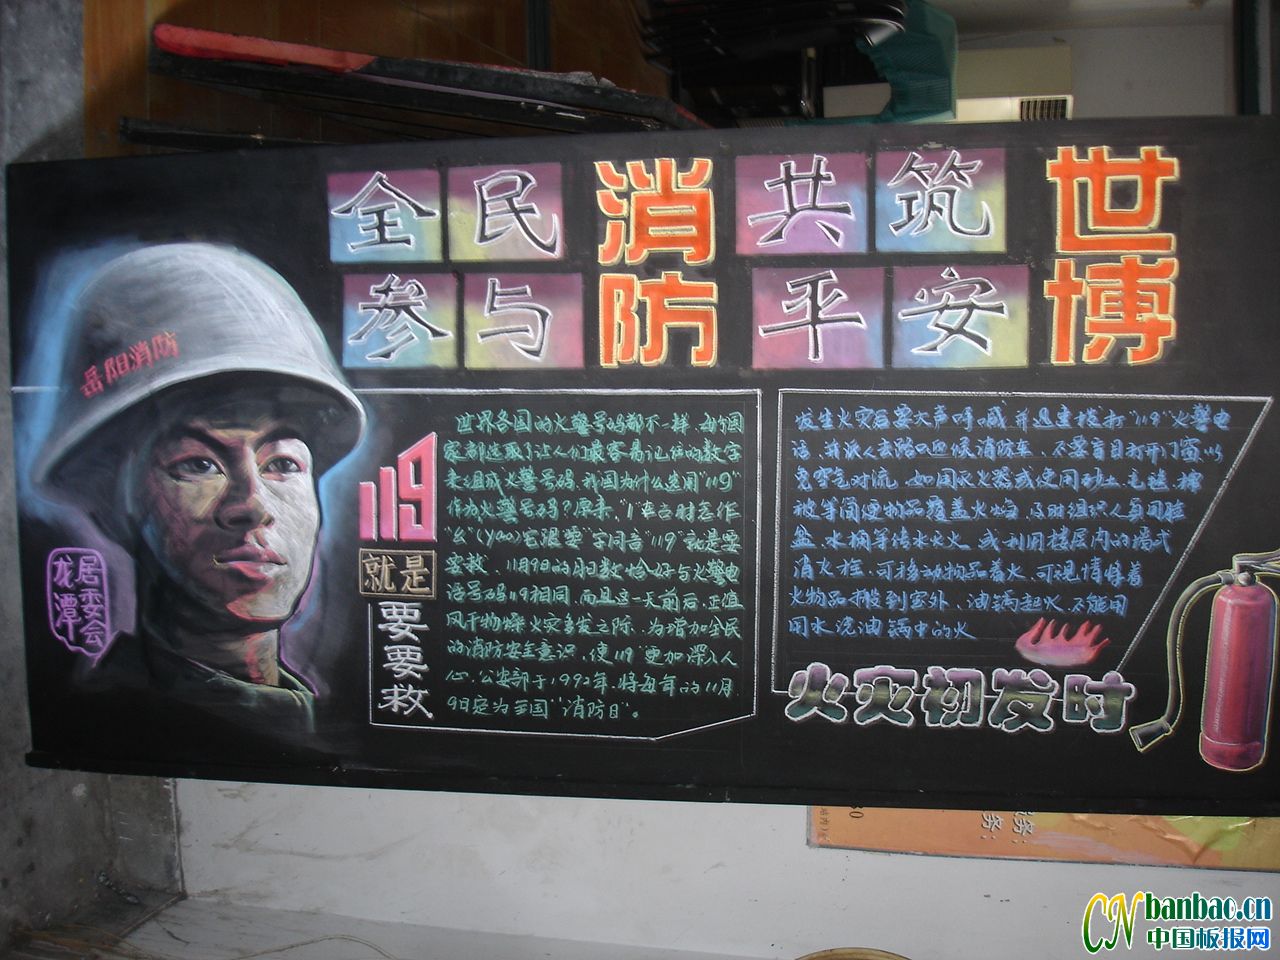 全民消防共筑世博
参与 平安
岳阳消防
龙潭
居委会
119
就是
要要救
世界各国的火警号码都不一样,每个国
家都选取了让人们最容易记住的数字
来组成火警号码.我国为什么选用"119"
作为火警号码?原来,"1"在古时念作
"幺"(yao)它跟要字同音"119"就是要
要救.11月9日的月日数恰好与火警电
话号码119相同.而且这一天前后,正值
风干物燥火灾多发之际.为增加全民
的消防安全意识,使"119"更加深入人
心.公安部于1992年,将每年的11月
9日定为全国"消防日"。
发生火灾后要大声呼喊并迅速拨打"119"火警电
话,并派人去路口迎候消防车.不要盲目打开门窗以
免空气对流.如用灭火器或使用砂土、毛毯、棉
被等简便物品覆盖火焰,及时组织人员用脸
盆、水桶等传水灭火,或利用楼层内的墙式
消火栓.可移动物品着火,可视情将着
火物品搬到室外,油锅起火,不能用
用水浇油锅中的火
火灾初发时
CN banbao.cn
中国板报网